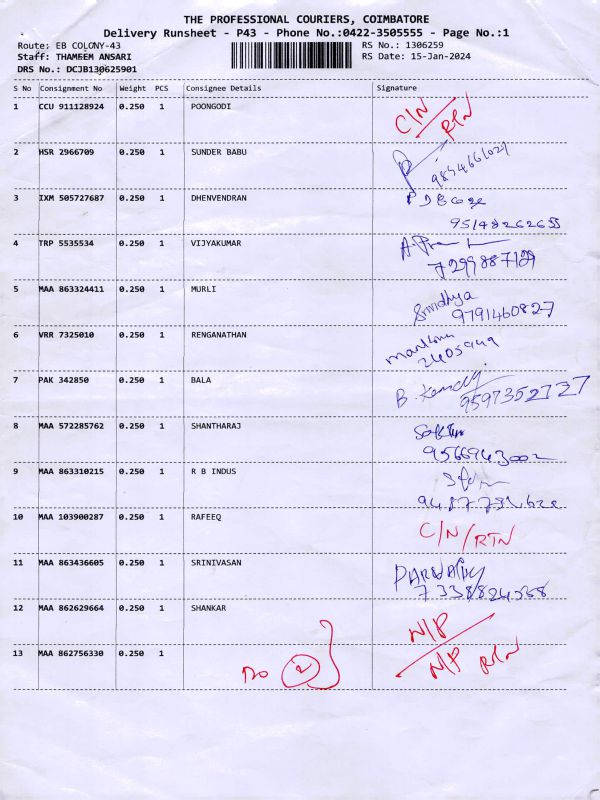 THE PROFESSIONAL COURIERS, COIMBATORE
Delivery Runsheet - P43 - Phone No.:0422-3505555 - Page No.:1
Route: EB COLONY-43 RS No.: 1306259
Staff: THAMEEM ANSARI RS Date: 15-Jan-2024
DRS No.: DCJB130625901
S No Consignment No Weight PCS Consignee Details Signature
1 CCU 911128924 0.250 1 POONGODI C/N RTN
2 HSR 2966709 0.250 1 SUNDER BABU
3 IXM 505727687 0.250 1 DHENVENDRAN
4 TRP 5535534 0.250 1 VIJYAKUMAR
5 MAA 863324411 0.250 1 MURLI Srividhya
9791460827
6 VRR 7325010 0.250 1 RENGANATHAN
2405949
7 PAK 342850 0.250 1 BALA
9597352727
8 MAA 572285762 0.250 1 SHANTHARAJ
9566943002
9 MAA 863310215 0.250 1 R B INDUS
10 MAA 103900287 0.250 1 RAFEEQ C/N/RTN
11 MAA 863436605 0.250 1 SRINIVASAN
7338824568
12 MAA 862629664 0.250 1 SHANKAR N/P
13 MAA 862756330 0.250 1 2 N/P RTN